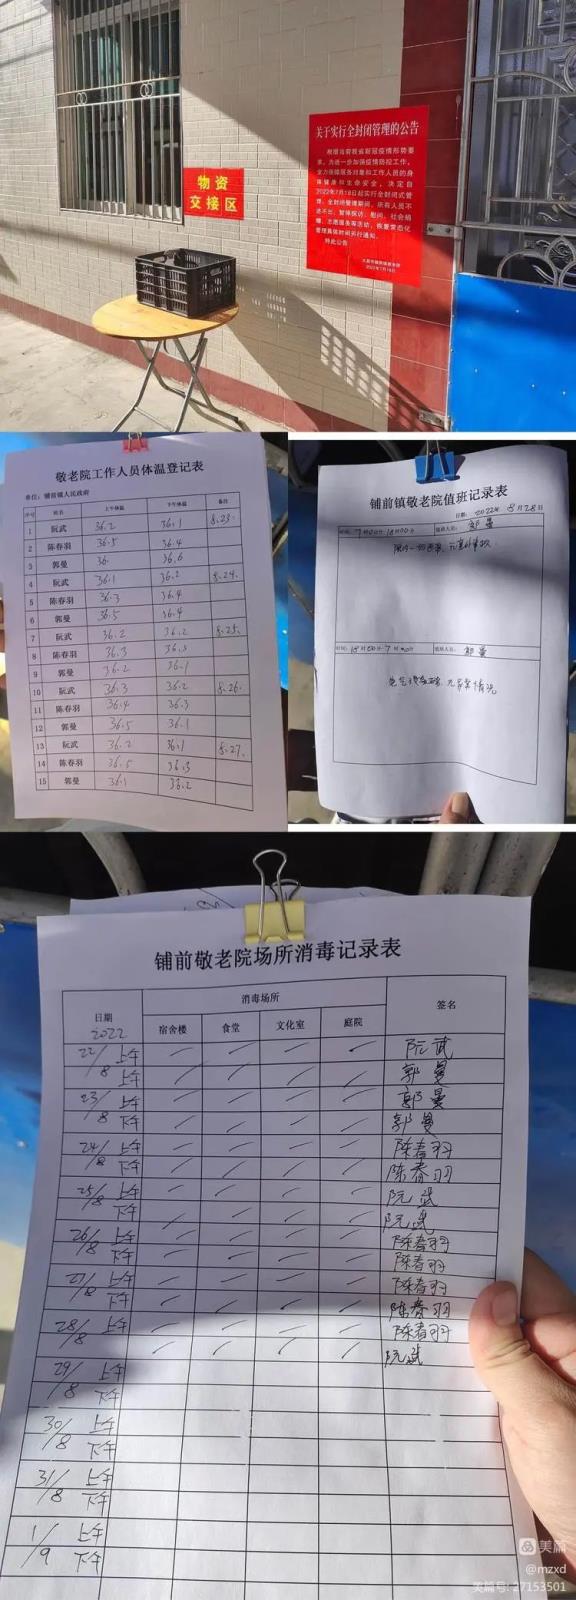 物资
交接区
关于实行全封闭管理的公告
根据当前我省新冠疫情形势要
求，为进一步加强疫情防控工作，
全力保障服务对象和工作人员的身
体健康和生命安全，决定自
2022年7月18日起实行全封闭式管
理，全封闭管理期间，所有人员不
进不出，暂停探访、慰问、社会捐
赠、志愿服务等活动，恢复常态化
管理具体时间另行通知。
特此公告
2022年7月18日
敬老院工作人员体温登记表
单位：铺前镇人民政府
序号 姓名 上午体温 下午体温 备注
1 阮武 36.2 36.1 8.23.
2 陈春羽 36.5 36.4
3 郭曼 36. 36.6
4 阮武 36.1 36.2 8.24.
5 陈春羽 36.3 36.4
6 郭曼 36.5 36.4
7 阮武 36.2 36.2 8.25.
8 陈春羽 36.3 36.3
9 郭曼 36.2 36.1
10 阮武 36.3 36.2 8.26.
11 陈春羽 36.4 36.3
12 郭曼 36.5 36.1
13 阮武 36.2 36.1 8.27.
14 陈春羽 36.5 36.3
15 郭曼 36.1 36.2
铺前镇敬老院值班记录表
日期：2022年 8月28日
时间：7时00分-18时00分 值班人员：郭曼
时间：18时00分-7时00分 值班人员：郭曼
铺前敬老院场所消毒记录表
日期 2022 消毒场所 签名
宿舍楼 食堂 文化室 庭院
22/8 上午 阮武
上午 郭曼
23/8 上午 郭曼
下午 郭曼
24/8 上午 陈春羽
下午 陈春羽
25/8 上午 阮武
下午 阮武
26/8 上午 陈春羽
下午 陈春羽
27/8 上午 陈春羽
下午 陈春羽
28/8 上午 陈春羽
阮武
29/8 上午
下午
30/8 上午
下午
31/8 上午
下午
1/9 上午
下午
美篇
@mzxd
美篇号: 27153501